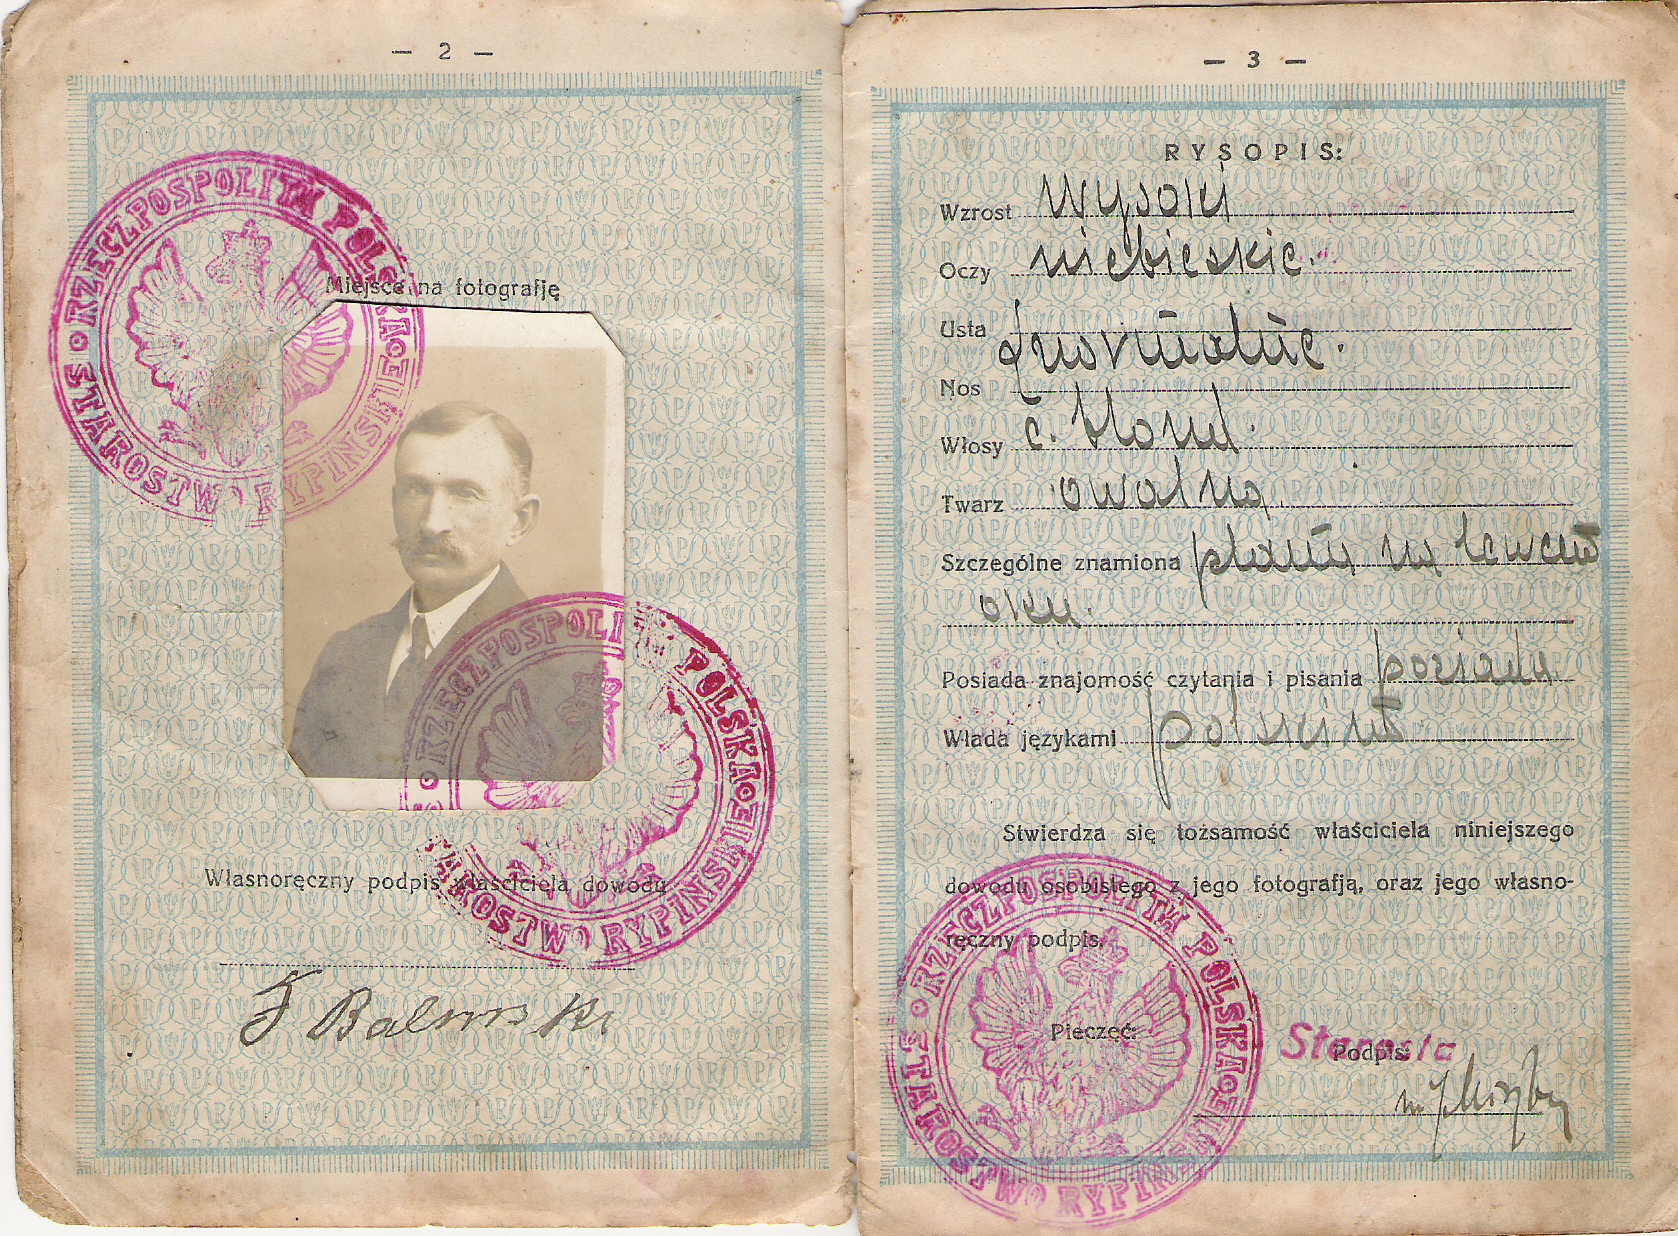 — 2 —
RZECZPOSPOLITA POLSKA
STAROSTWO RYPIŃSKIE
Miejsce na fotografję
RZECZPOSPOLITA POLSKA
STAROSTWO RYPIŃSKIE
Własnoręczny podpis właściciela dowodu
F Balewski
— 3 —
RYSOPIS:
Wzrost wysoki
Oczy niebieskie.
Usta
normalne.
Nos
Włosy c. blond.
Twarz owalna
Szczególne znamiona plama na lewem
oku.
Posiada znajomość czytania i pisania posiada
Włada językami polskim
Stwierdza się tożsamość właściciela niniejszego
dowodu osobistego z jego fotografją, oraz jego własno-
ręczny podpis.
RZECZPOSPOLITA POLSKA
STAROSTWO RYPIŃSKIE
Pieczęć:
Starosta
Podpis: